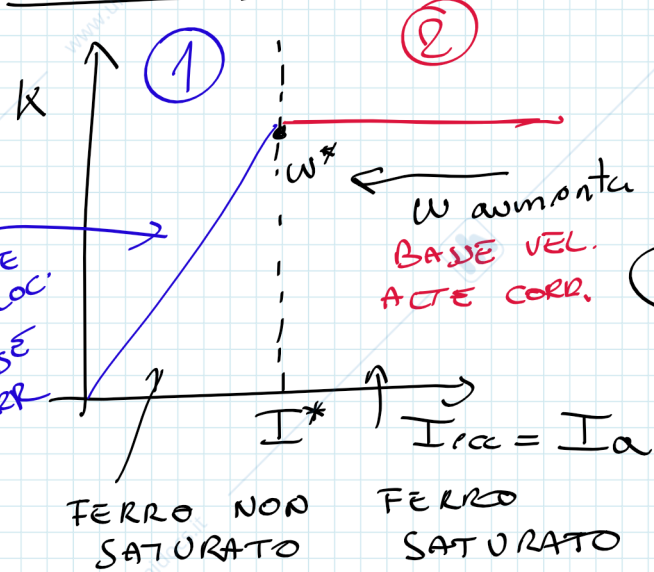 1
2
K
ω*
ω aumenta
BASSE VEL.
ALTE CORR.
I*
Iecc = Ia
FERRO NON
SATURATO
FERRO
SATURATO